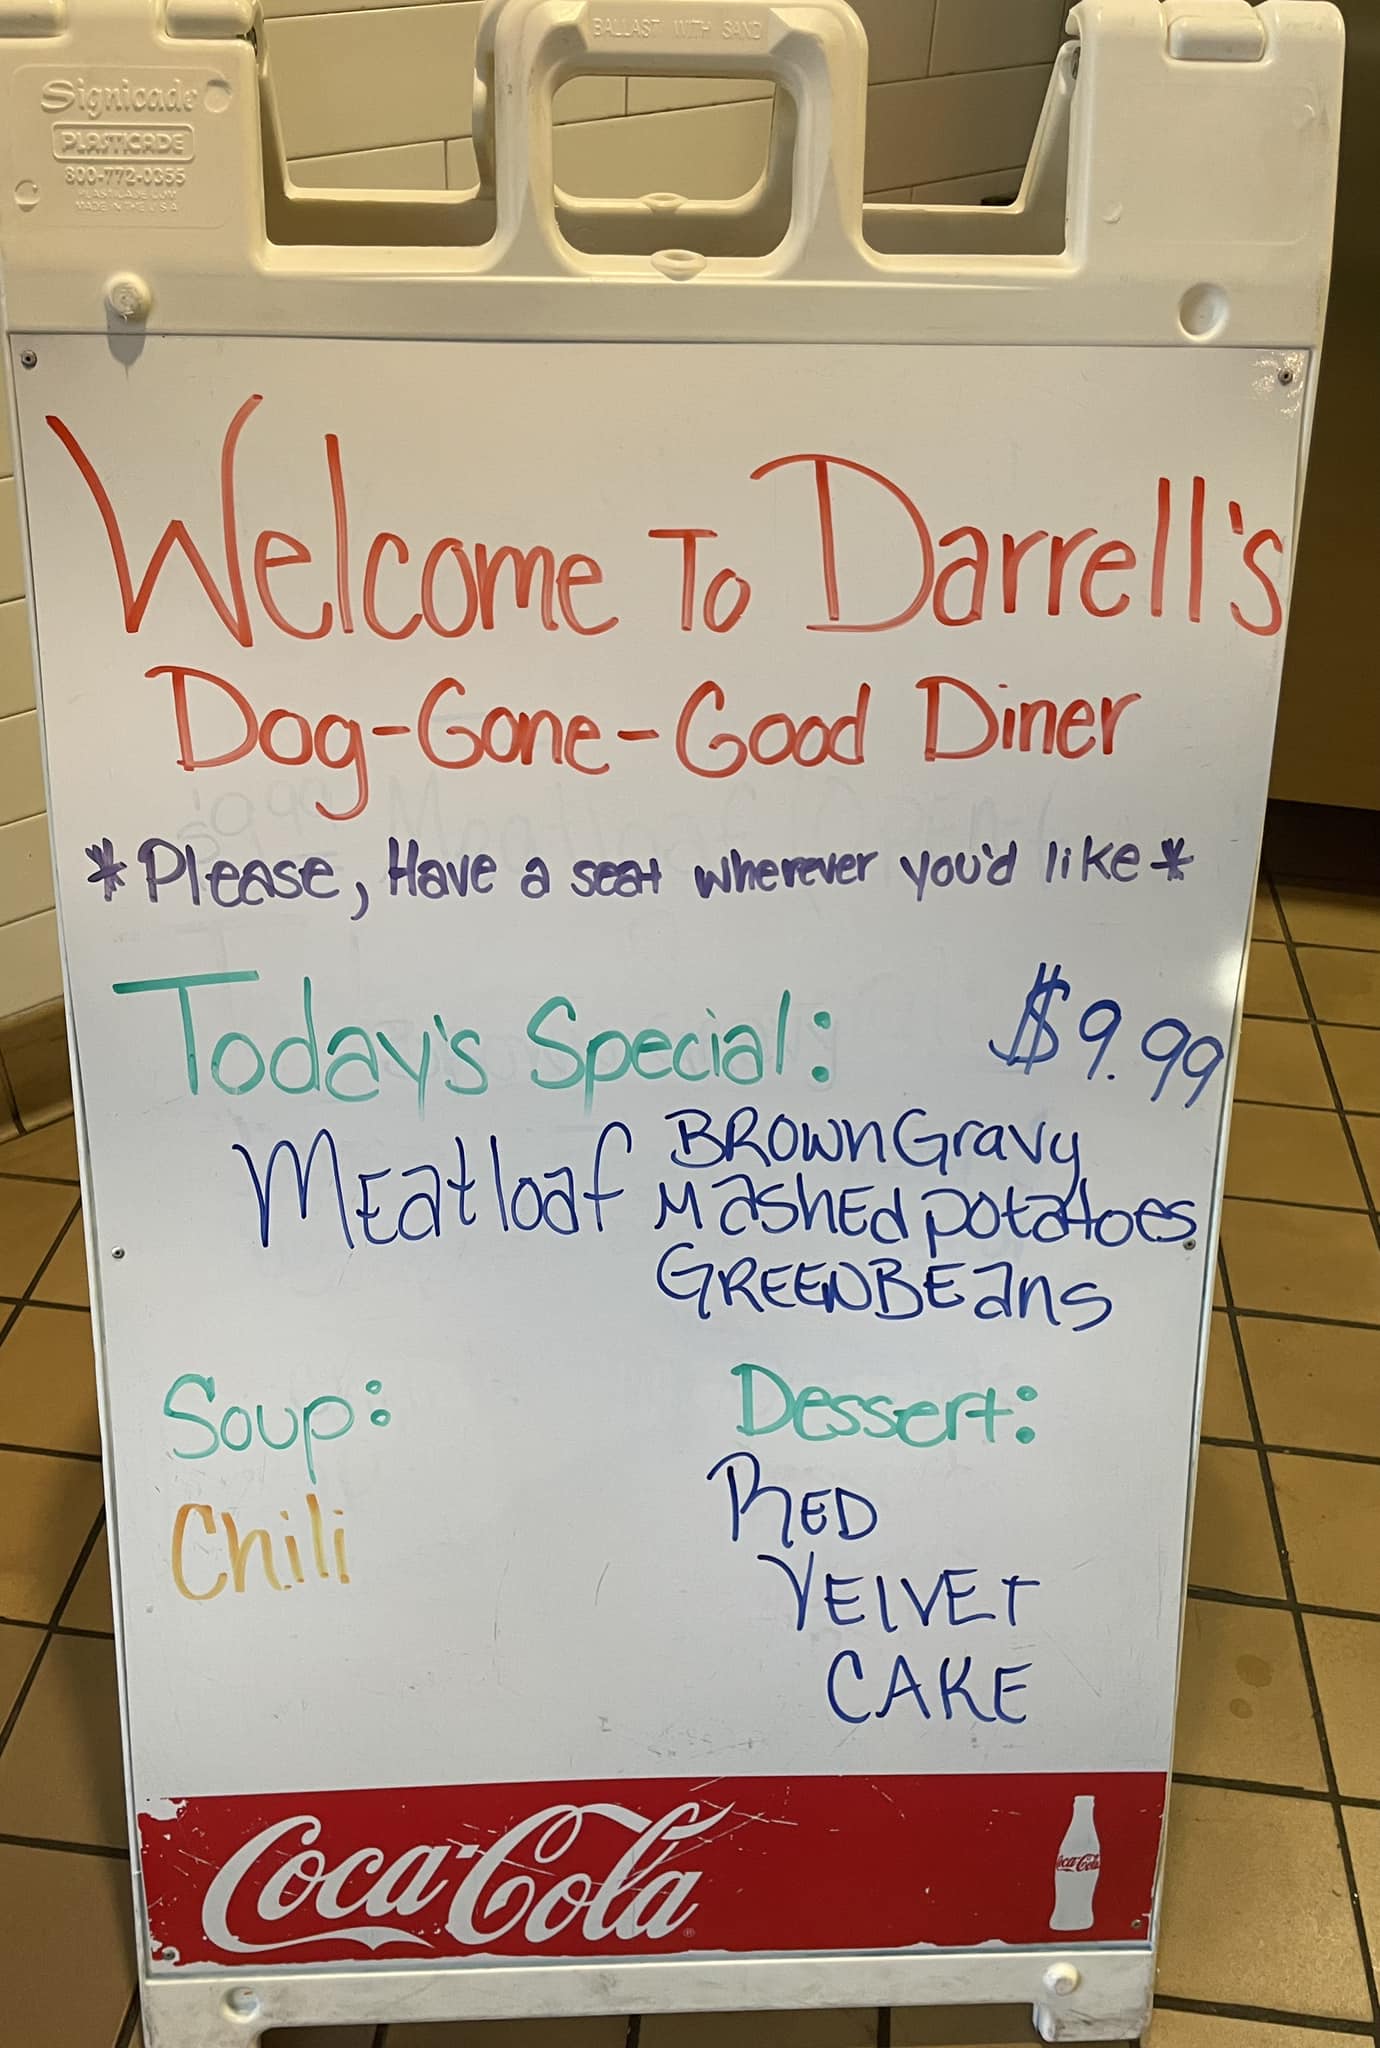 BALLAST WITH SAND
Signicade
PLASTICADE
800-772-0355
PLASTICADE.COM
MADE IN THE U.S.A
Welcome To Darrell's
Dog-Gone-Good Diner
*Please, Have a seat wherever you'd like*
Today's Special: $9.99
Meatloaf BROWN Gravy
MasHEd potatoes
GREEN BEans
Soup:
Chili
Dessert:
RED
VElVET
CAKE
Coca-Cola
Coca-Cola